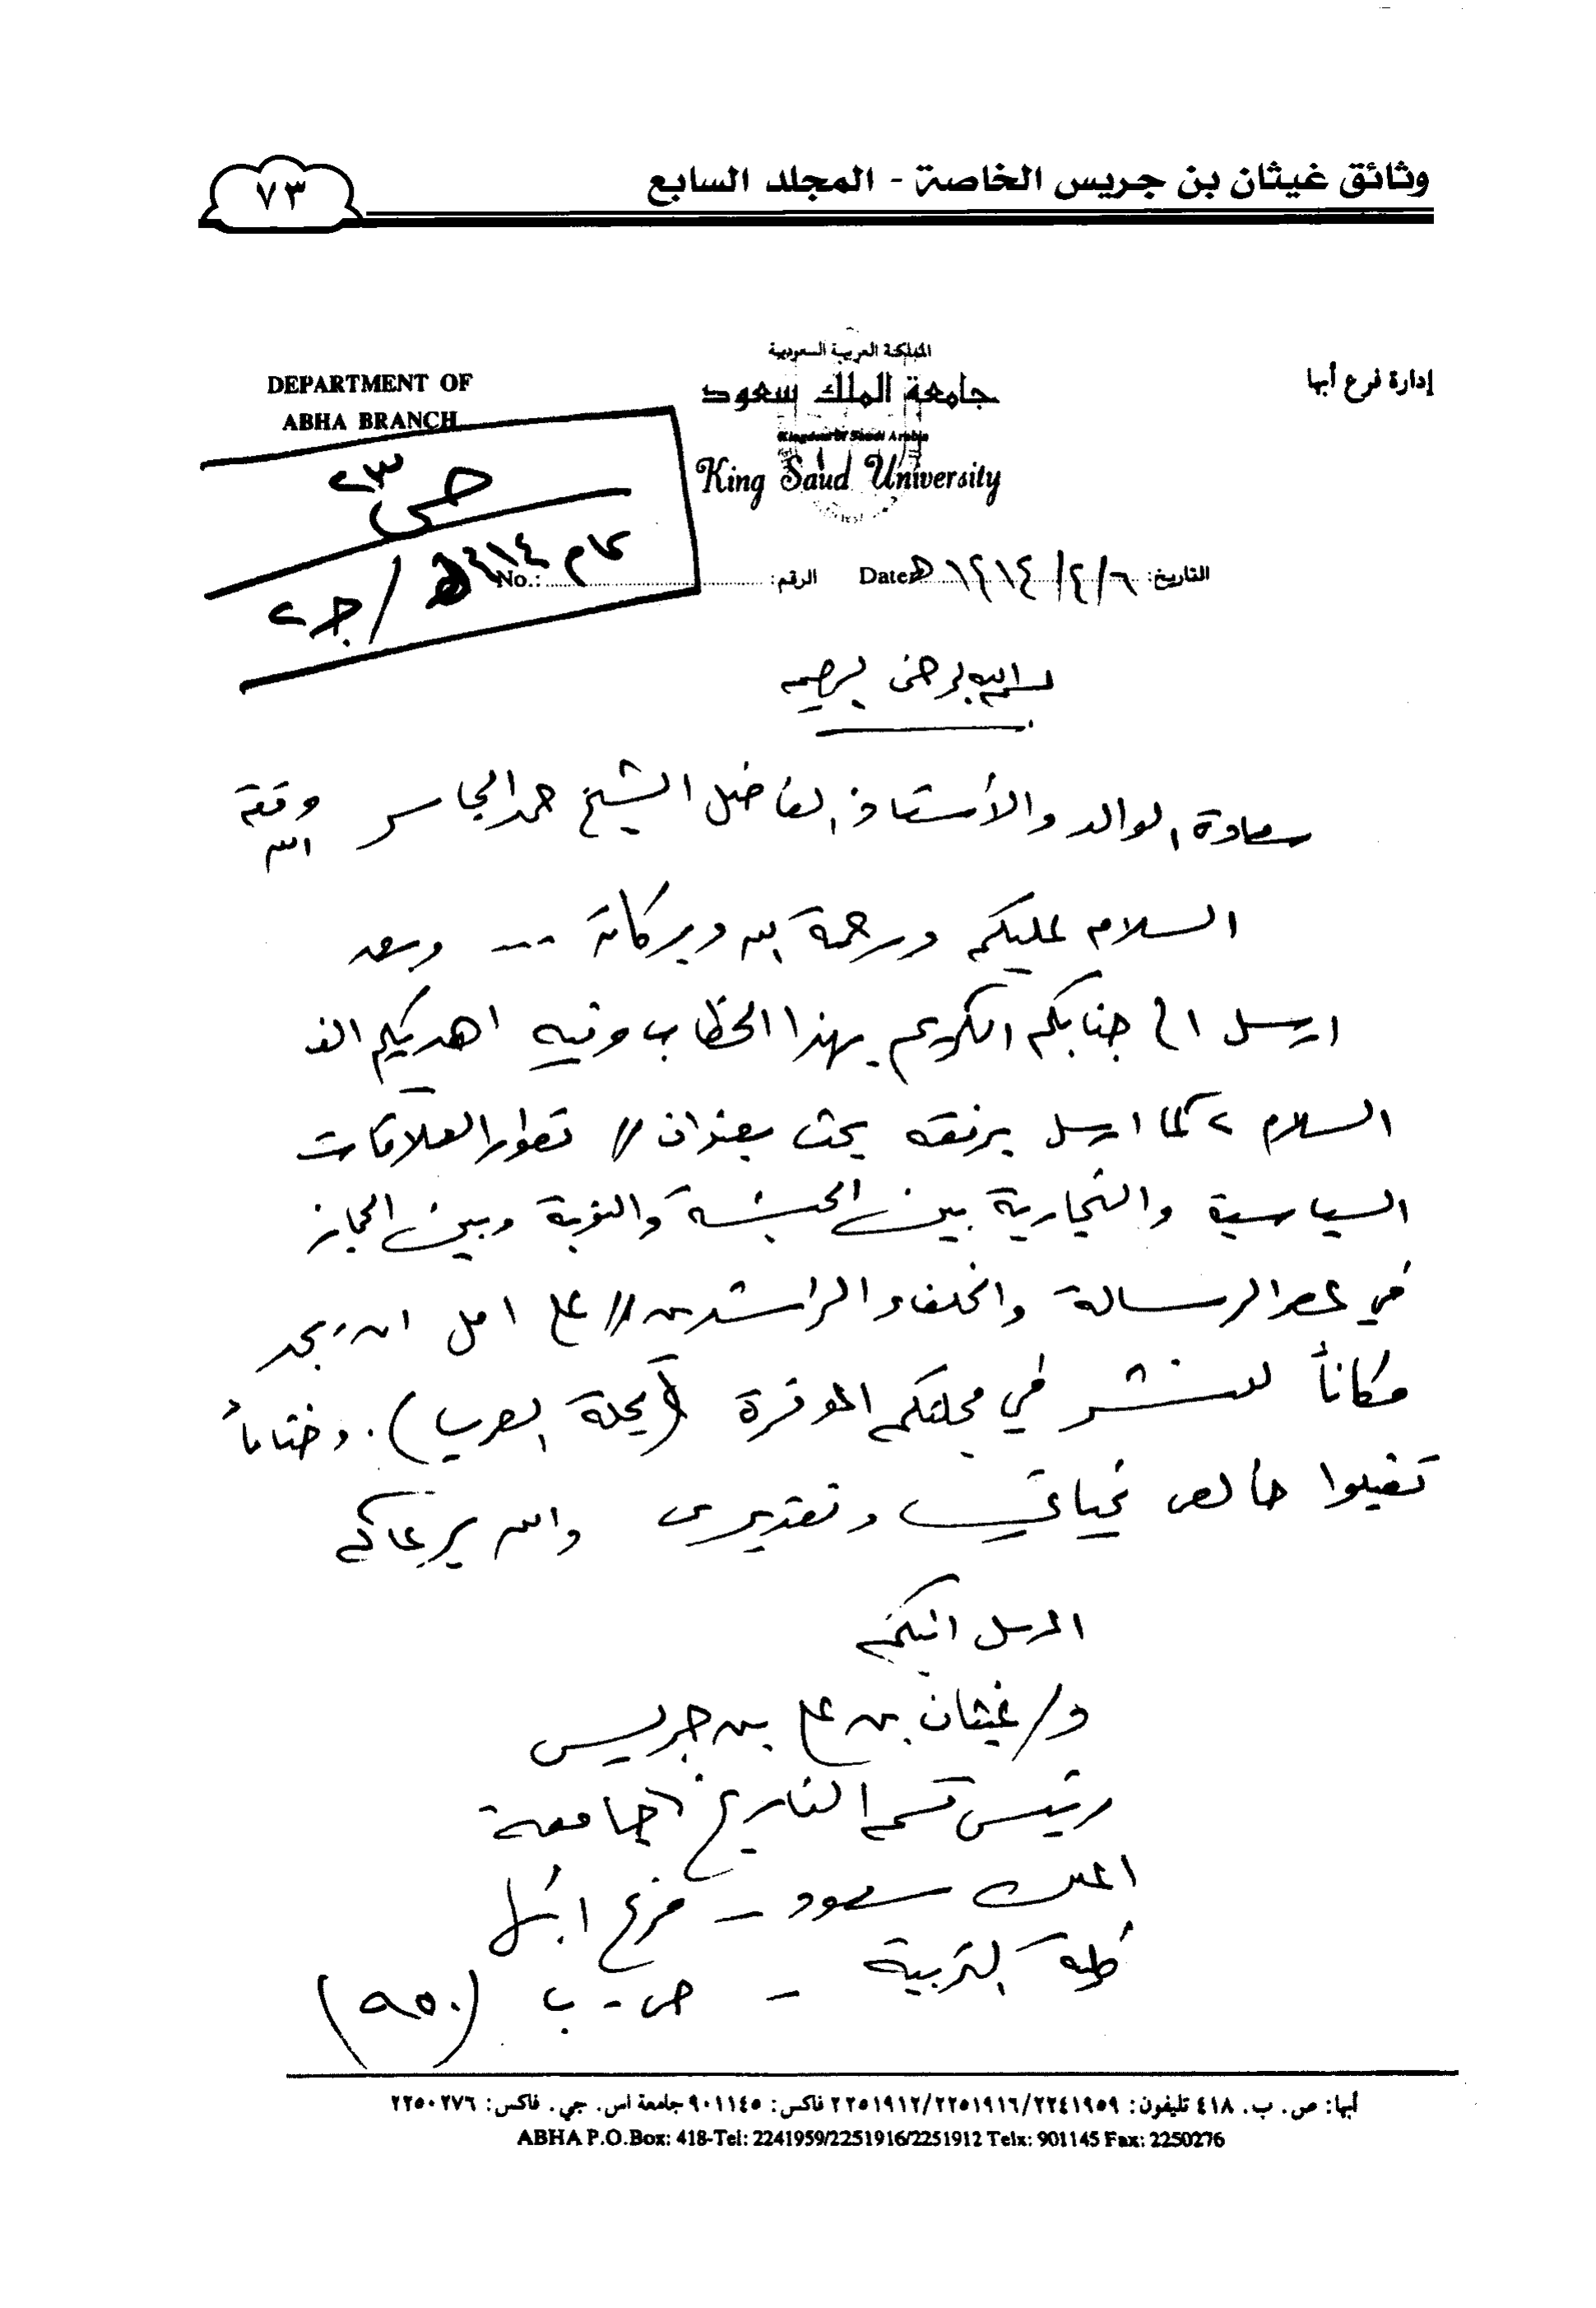 وثائق غيثان بن جريس الخاصة - المجلد السابع
٧٣
إدارة فرع أبها
المملكة العربية السعودية
جامعة الملك سعود
Kingdom Of Saudi Arabia
King Saud University
DEPARTMENT OF
ABHA BRANCH
ص ٢٣
عام ١٤١٤هـ / جـ ٢
التاريخ: ٦/٢/١٤١٤هـ Date
الرقم: No.:
بسم الله الرحمن الرحيم
سعادة الوالد والأستاذ الفاضل الشيخ حمد الجاسر وفقه الله
السلام عليكم ورحمة الله وبركاته --- وبعد
ارسل الى جنابكم الكريم بهذا الخطاب وفيه اهديكم الف
السلام، كما ارسل برفقه بحث بعنوان // تطور العلاقات
السياسية والتجارية بين الحبشة والنوبة وبين الحجاز
في عصر الرسالة والخلفاء الراشدين // على امل ان يجد
مكاناً للنشر في مجلتكم الموقرة (مجلة العرب). وختاماً
تقبلوا خالص تحياتي وتقديري والله يرعاكم
المرسل اليكم
د/ غيثان بن علي بن جريس
رئيس قسم التاريخ بجامعة
الملك سعود - فرع ابها
كلية التربية - ص - ب (٩٥٠)
أبها: ص. ب. ٤١٨ تليفون: ٢٢٤١٩٥٩/٢٢٥١٩١٦/٢٢٥١٩١٢ فاكس: ٩٠١١٤٥ جامعة اس. جي. فاكس: ٢٢٥٠٢٧٦
ABHA P.O.Box: 418-Tel: 2241959/2251916/2251912 Telx: 901145 Fax: 2250276